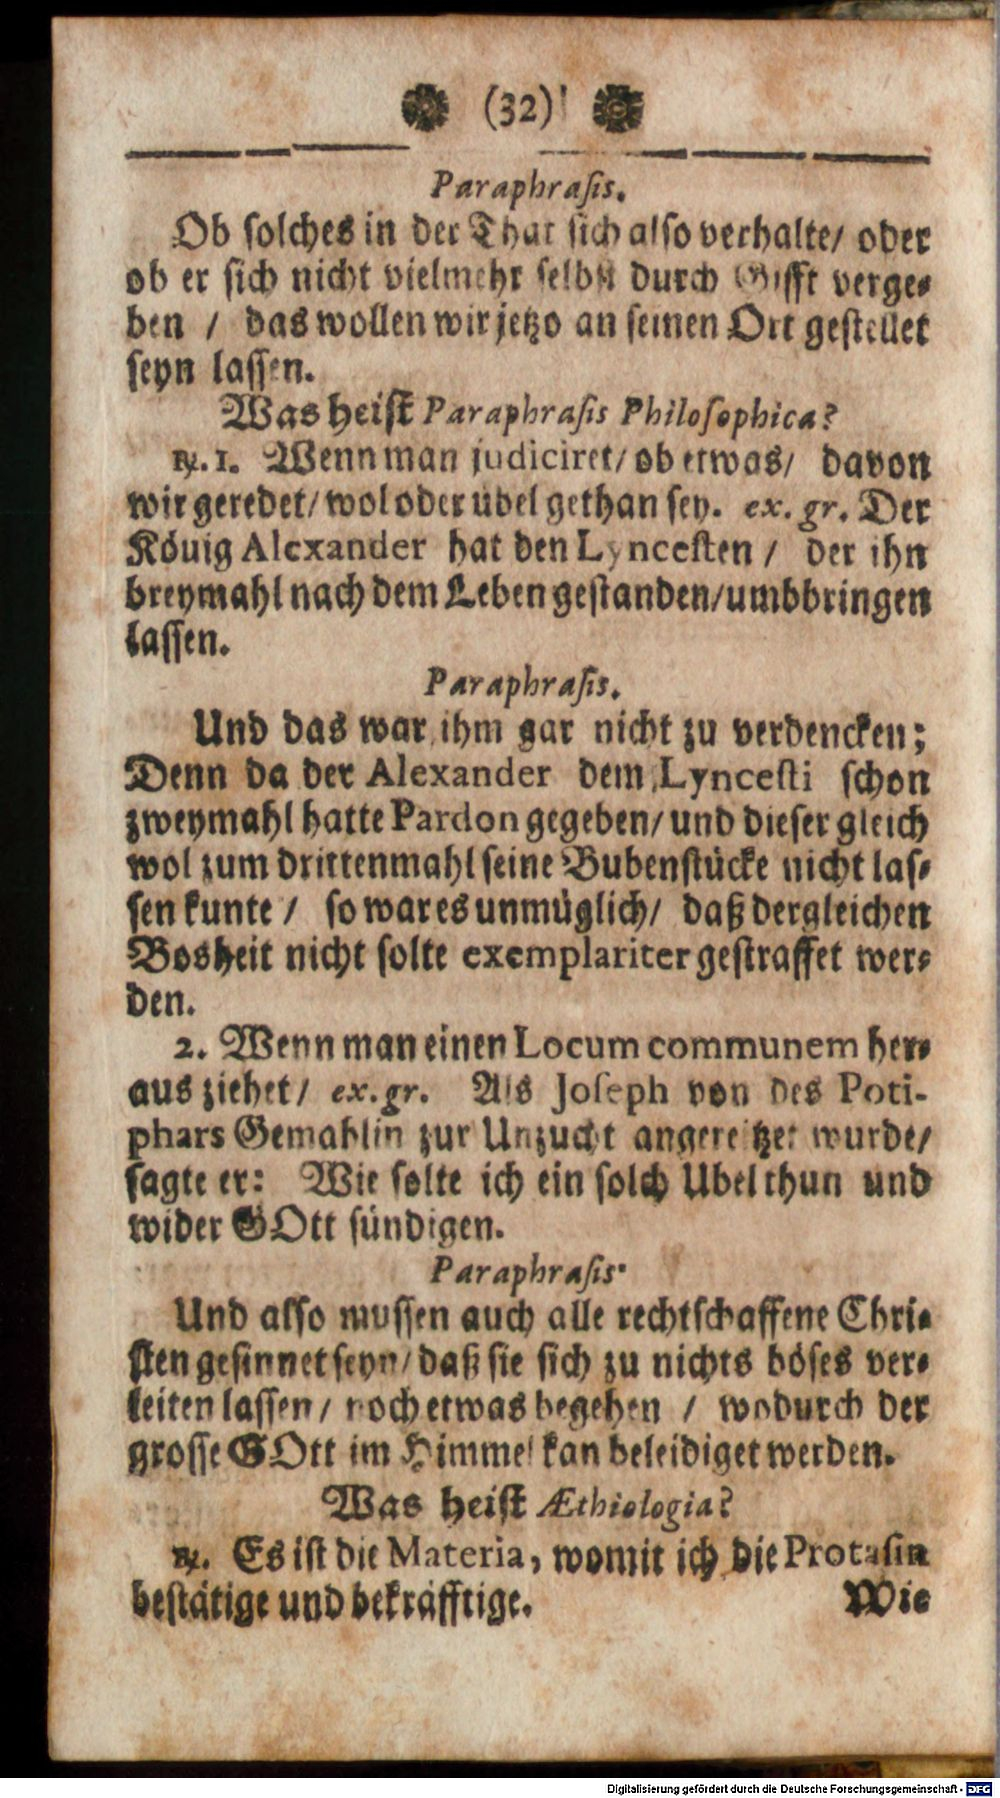 (32)
Paraphrasis.
Ob solches in der That sich also verhalte/ oder
ob er sich nicht vielmehr selbst durch Gifft verge-
ben / das wollen wir jetzo an seinen Ort gestellet
seyn lassen.
Was heist Paraphrasis Philosophica?
℞. 1. Wenn man judiciret/ ob etwas/ davon
wir geredet/ wol oder ubel gethan sey. ex. gr. Der
Köuig Alexander hat den Lyncesten / der ihn
breymahl nach dem Leben gestanden/ umbbringen
lassen.
Paraphrasis.
Und das war ihm gar nicht zu verdencken;
Denn da der Alexander dem Lyncesti schon
zweymahl hatte Pardon gegeben/ und dieser gleich
wol zum drittenmahl seine Bubenstücke nicht las-
sen kunte / so war es unmüglich/ daß dergleichen
Bosheit nicht solte exemplariter gestraffet wer-
den.
2. Wenn man einen Locum communem her-
aus ziehet/ ex. gr. Als Joseph von des Poti-
phars Gemahlin zur Unzucht angereitzet wurde/
sagte er: Wie solte ich ein solch Ubel thun und
wider GOtt sündigen.
Paraphrasis.
Und also mussen auch alle rechtschaffene Chri-
sten gesinnet seyn/ daß sie sich zu nichts böses ver-
leiten lassen/ noch etwas begehen / wodurch der
grosse GOtt im Himmel kan beleidiget werden.
Was heist Æthiologia?
℞. Es ist die Materia, womit ich die Protasin
bestätige und bekräfftige.
Wie
Digitalisierung gefördert durch die Deutsche Forschungsgemeinschaft - DFG